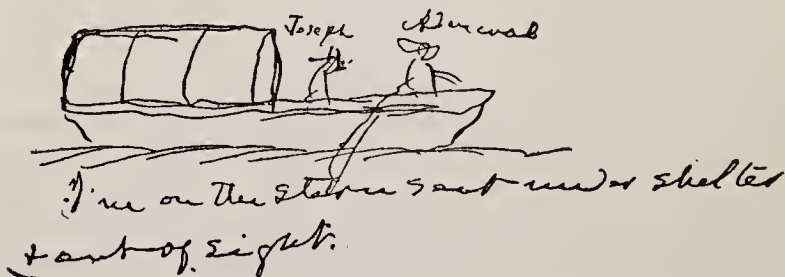 Joseph
I'm on the stern seat under shelter
& out of sight.